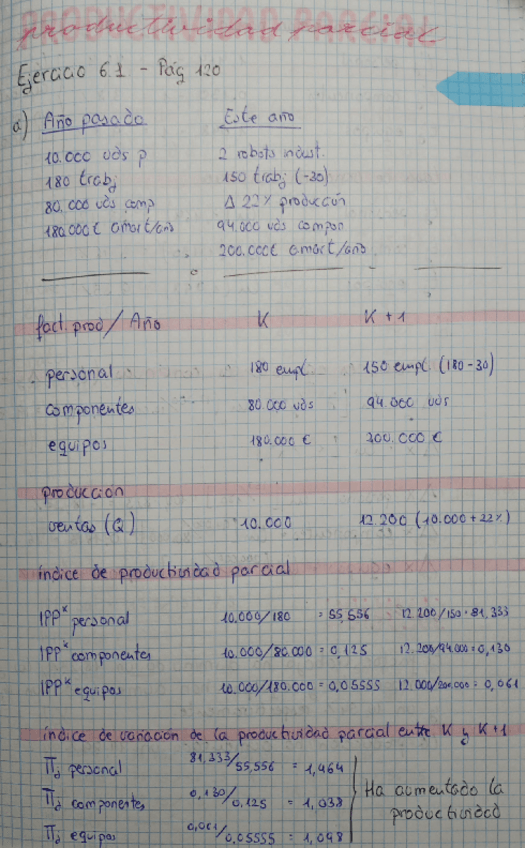 productividad parcial
Ejercicio 6.1 - Pág 120
a) Año pasado Este año
10.000 uds p 2 robots indust.
180 trabj 150 trabj (-30)
80.000 uds comp Δ 22% producción
180.000€ amort/año 94.000 uds compon
200.000€ amort/año
fact. prod / Año K K + 1
personal 180 empl. 150 empl. (180-30)
componentes 80.000 uds 94.000 uds
equipos 180.000 € 200.000 €
producción
ventas (Q) 10.000 12.200 (10.000 + 22%)
índice de productividad parcial
IPPᵏ personal 10.000/180 = 55,556 12.200/150 = 81,333
IPPᵏ componentes 10.000/80.000 = 0,125 12.200/94.000 = 0,130
IPPᵏ equipos 10.000/180.000 = 0,05555 12.000/200.000 = 0,061
índice de variación de la productividad parcial entre K y K+1
Π₂ personal 81,333/55,556 = 1,464
Π₂ componentes 0,130/0,125 = 1,038 Ha aumentado la
productividad
Π₂ equipos 0,061/0,05555 = 1,098